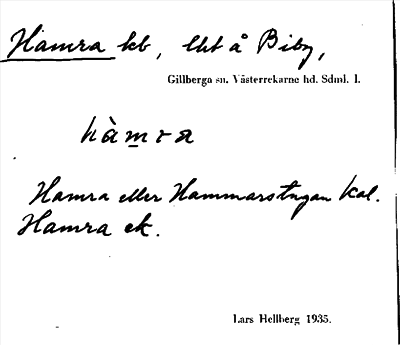 Hamra kb, lht å Biby,
Gillberga sn. Västerrekarne hd. Sdml. l.
hàmra
Hamra eller Hammarstugan kal.
Hamra ek.
Lars Hellberg 1935.